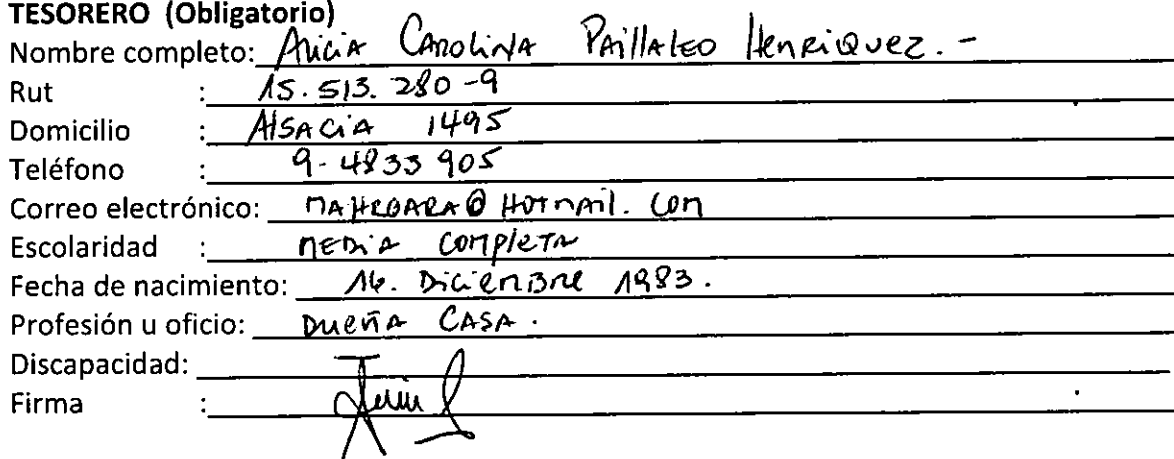 TESORERO (Obligatorio)
Nombre completo: Alicia Carolina Paillaleo Henriquez.-
Rut : 15.513.280-9
Domicilio : Alsacia 1495
Teléfono : 9-4833 905
Correo electrónico: @ Hotmail.com
Escolaridad : Media completa
Fecha de nacimiento: 16. Diciembre 1983.
Profesión u oficio: Dueña Casa.
Discapacidad:
Firma :